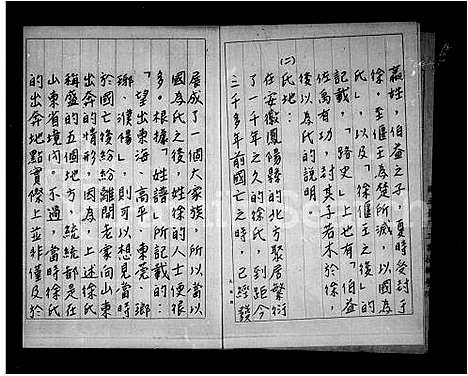 嬴姓，伯益之子，夏時受封于
徐。至偃王為楚所滅，以國為
氏」，以及「徐偃王之後」的
記載，「路史」上也有「伯益
佐禹有功，封其子若木於徐，
後以為氏的說明
(二)氏地：
在安徽鳳陽縣的北方聚居繁衍
了一千年之久的徐氏，到距今
三千多年前國亡之時，已經發
展成了一個大家族，所以當以
國為氏之後，姓徐的人士便很
多。根據「姓譜」所記載的：
「望出東海、高平、東莞、瑯
琊、濮陽」，則可以想見當時
於國亡後紛紛離開老家向山東
出奔的情形，因為，上述徐氏
稱盛的五個地方，統統都是在
山東省境內。不過，當時徐氏
的出奔地點實際上並非僅及於